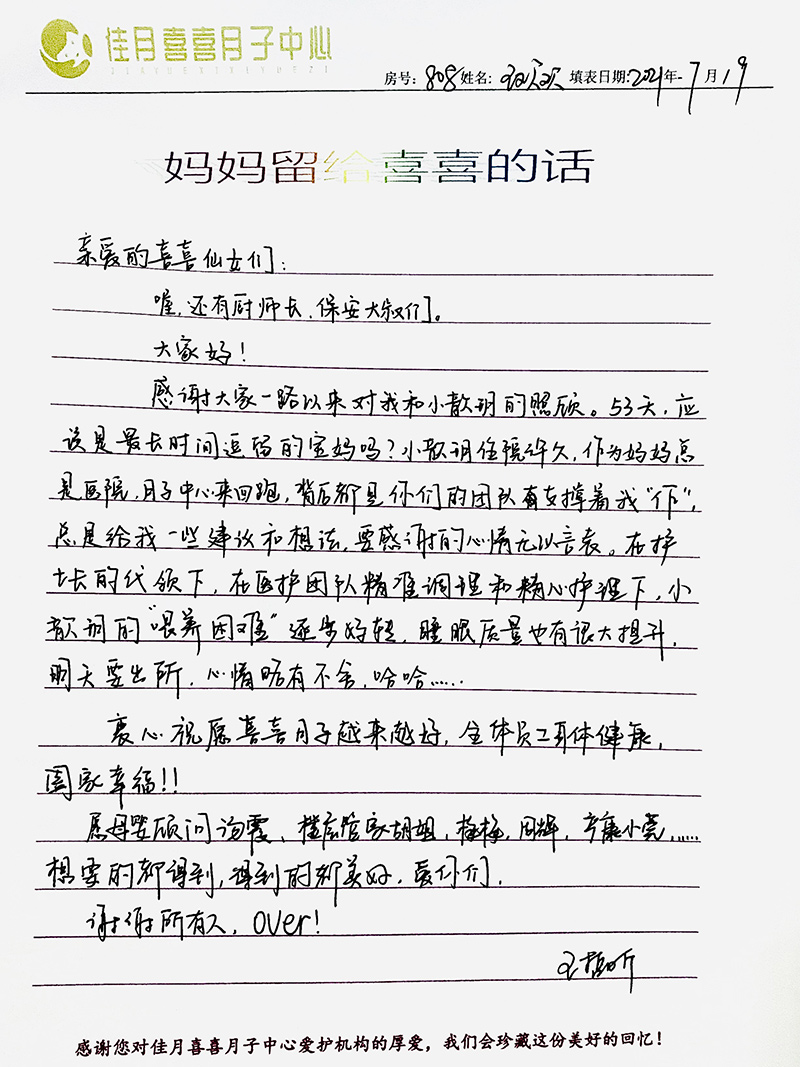 佳月喜喜月子中心
JIAYUEXIXIYUEZI
房号：808 姓名： 填表日期：2021年-7月19
妈妈留给喜喜的话
亲爱的喜喜仙女们：
喔，还有厨师长、保安大叔们。
大家好！
感谢大家一路以来对我和小歆玥的照顾。53天，应
该是最长时间逗留的宝妈吗？小歆玥住院许久，作为妈妈总
是医院、月子中心来回跑，背后都是你们的团队有支撑着我"们"，
总是给我一些建议和想法，要感谢的心情无以言表。在护
士长的代领下，在医护团队精准调理和精心护理下，小
歆玥的"喂养困难"逐步好转，睡眠质量也有很大提升，
明天要出所，心情略有不舍，哈哈……
衷心祝愿喜喜月子越来越好，全体员工身体健康，
阖家幸福！！
愿母婴顾问 、楼层管家胡姐，梅梅， ，产康小莞，……
想要的都得到，得到的都美好，爱你们，
谢谢所有人，over！
感谢您对佳月喜喜月子中心爱护机构的厚爱，我们会珍藏这份美好的回忆！